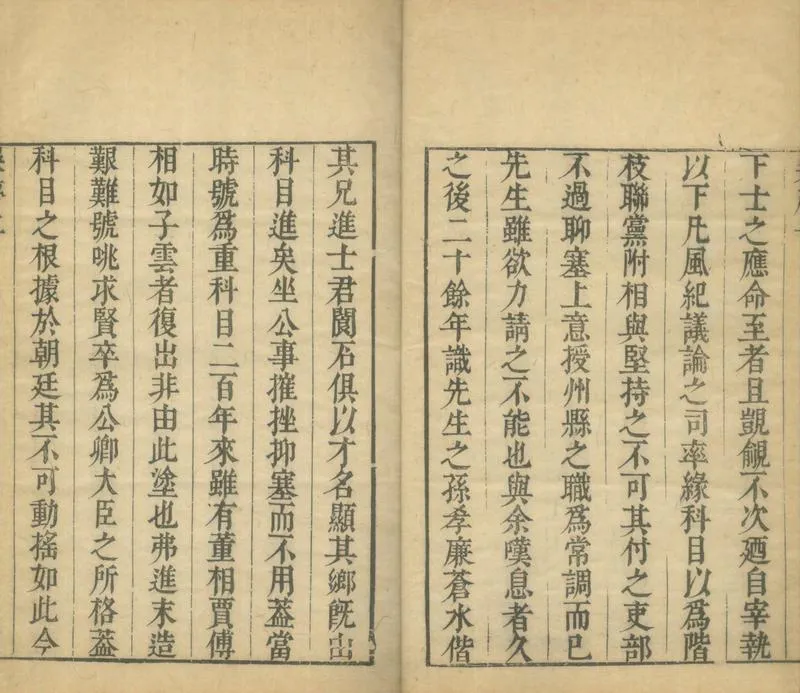 下士之應命至者且覬覦不次廼自宰執
以下凡風紀議論之司率緣科目以爲階
枝聯黨附相與堅持之不可其付之吏部
不過聊塞上意授州縣之職爲常調而已
先生雖欲力請之不能也與余嘆息者久
之後二十餘年識先生之孫孝廉蒼水偕
其兄進士君閬石俱以才名顯其鄉旣出
科目進矣坐公事摧挫抑塞而不用蓋當
時號爲重科目二百年來雖有董相賈傅
相如子雲者復出非由此塗也弗進末造
艱難號咷求賢卒爲公卿大臣之所格蓋
科目之根據於朝廷其不可動搖如此今